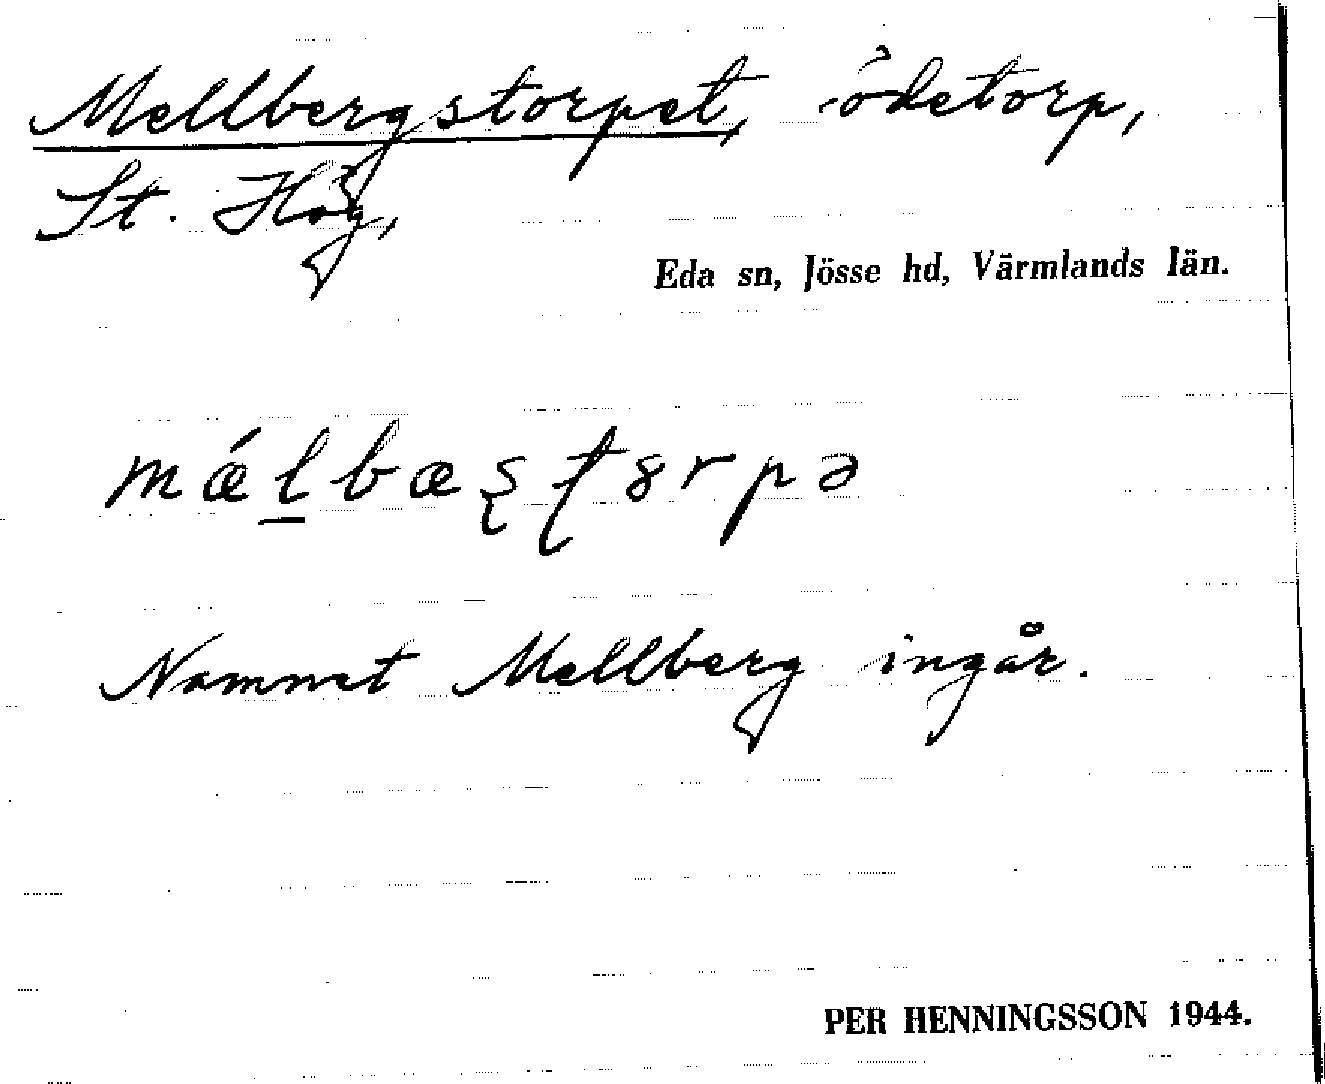 Mellbergstorpet, ödetorp,
St. Hög,
Eda sn, Jösse hd, Värmlands län.
mǽl̲bæʂʈ8rpə
Namnet Mellberg ingår.
PER HENNINGSSON 1944.